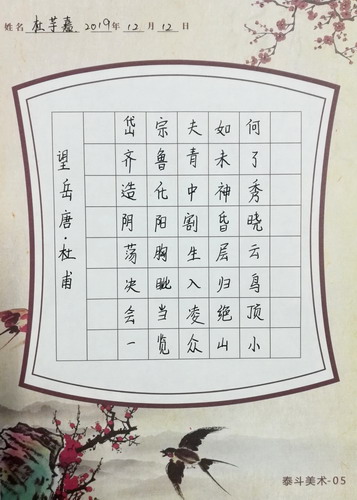 姓名 2019年12月12日
望岳唐·杜甫
岱宗夫如何
齐鲁青未了
造化中神秀
阴阳割昏晓
荡胸生层云
决眦入归鸟
会当凌绝顶
一览众山小
泰斗美术-05